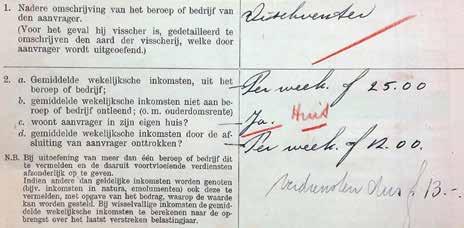 1. Nadere omschrijving van het beroep of bedrijf van
den aanvrager.
(Voor het geval hij visscher is, gedetailleerd te
omschrijven den aard der visscherij, welke door
aanvrager wordt uitgeoefend.)
Vischventer
2. a. Gemiddelde wekelijksche inkomsten, uit het
beroep of bedrijf;
Per week. f 25.00
b. gemiddelde wekelijksche inkomsten niet aan be-
roep of bedrijf ontleend; (o. m. ouderdomsrente)
c. woont aanvrager in zijn eigen huis?
Ja. Huis
d. gemiddelde wekelijksche inkomsten door de af-
sluiting van aanvrager onttrokken?
Per week. f 12.00.
N.B. Bij uitoefening van meer dan één beroep of bedrijf dit
te vermelden en de daaruit voortvloeiende verdiensten
afzonderlijk op te geven.
Indien andere dan geldelijke inkomsten worden genoten
(bijv. inkomsten in natura, emolumenten) ook deze te
vermelden, met opgave van het bedrag, waarop de waarde
kan worden gesteld. Bij wisselvallige inkomsten de gemid-
delde wekelijksche inkomsten te berekenen naar de op-
brengst over het laatst verstreken belastingjaar.
verdiensten dus f 13.-